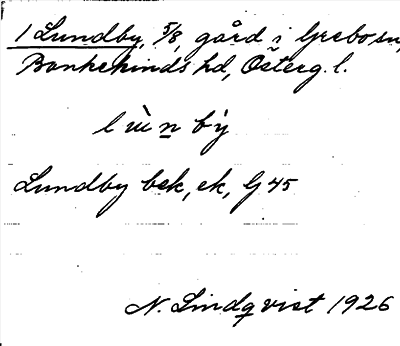 1 Lundby, 5/8, gård i Grebo sn,
Bankekinds hd, Österg. l.
lùnbỳ
Lundby bek, ek, G 45
N. Lindqvist 1926